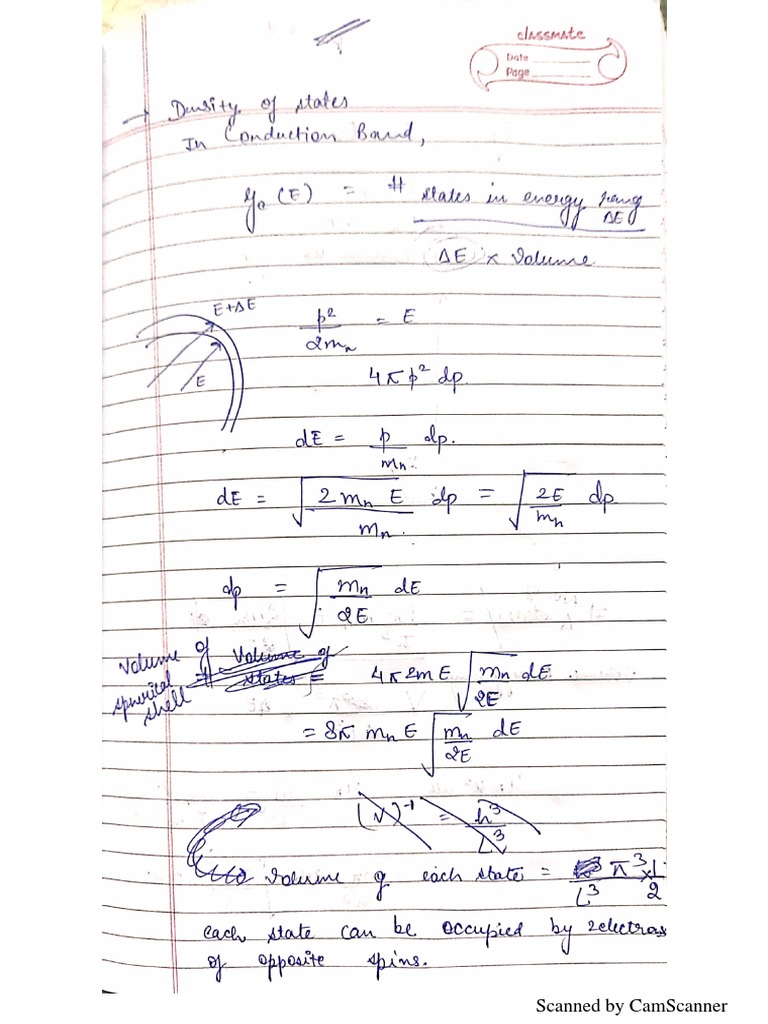 classmate
Date
Page
→ Density of states
In Conduction Band,
g₀(E) = # states in energy rang ΔE
ΔE × Volume
E+ΔE
E
p²/2mₙ = E
4π p² dp
dE = p/mₙ dp.
dE = √(2mₙ E)/mₙ dp = √(2E/mₙ) dp
dp = √(mₙ/2E) dE
Volume of spherical shell = 4π2mE √(mₙ/2E) dE
= 8π mₙ E √(mₙ/2E) dE
(V)⁻¹ = h³/L³
Volume of each state = π³/L³ × 1/2
each state can be occupied by 2electrons
of opposite spins.
Scanned by CamScanner